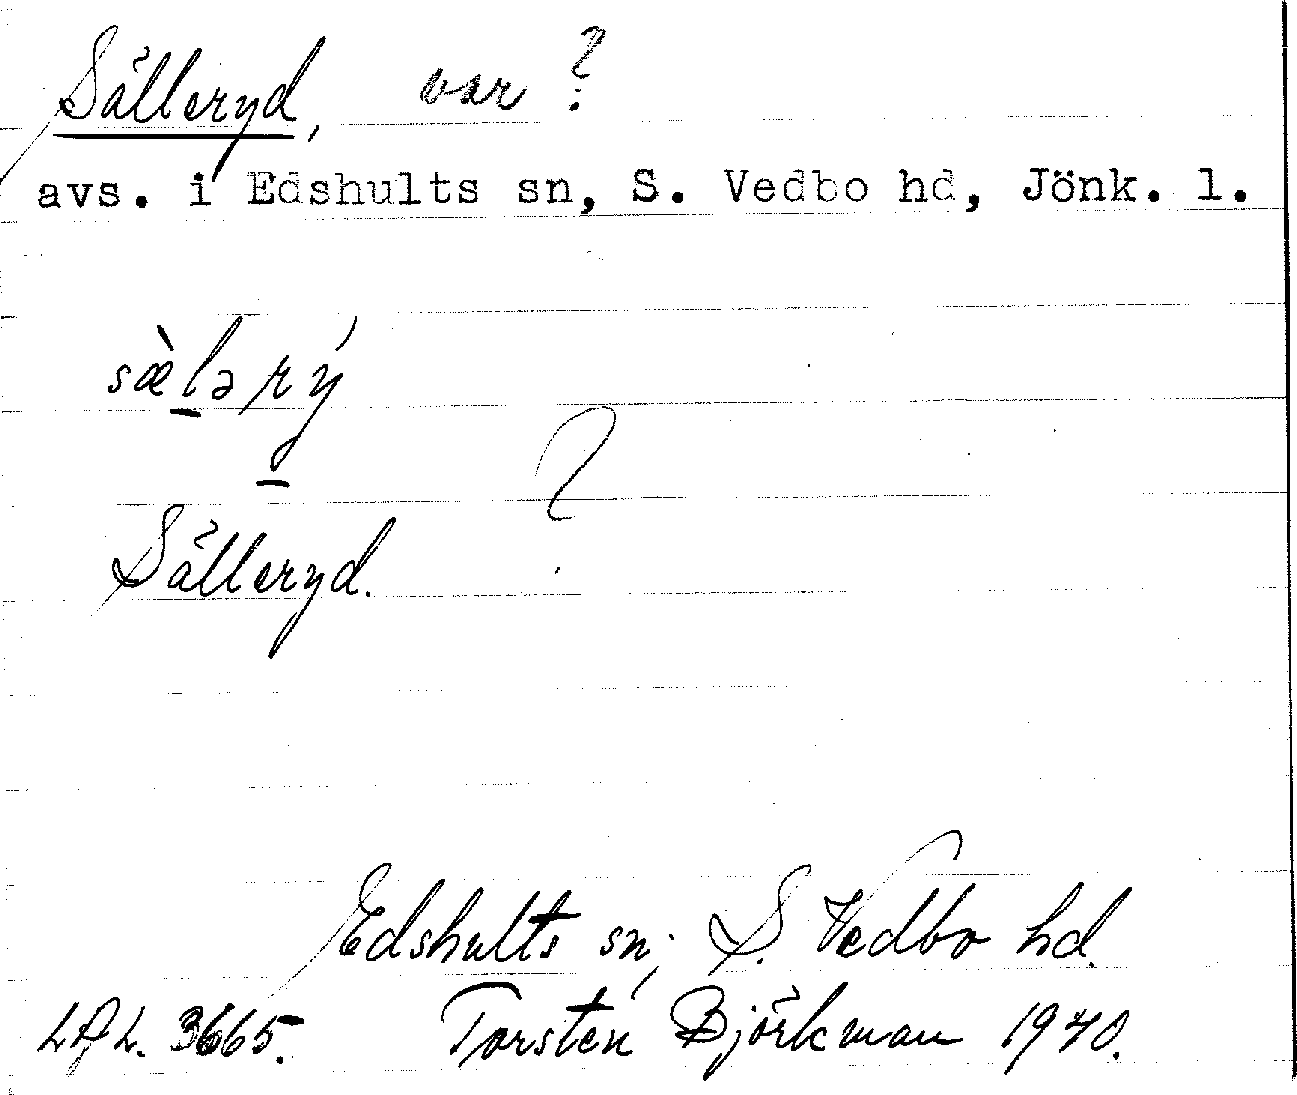 Sälleryd, var ?
avs. i Edshults sn, S. Vedbo hd, Jönk. l.
sæ̀lərý
?
Sälleryd.
Edshults sn; S. Vedbo hd.
LAL. 3665. Torsten Björkman 1940.